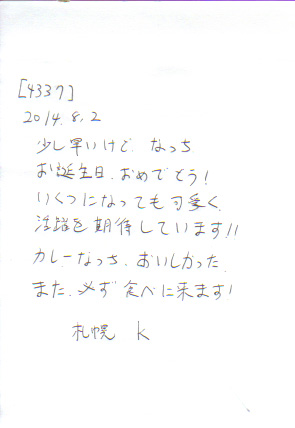 [4337]
2014.8.2
少し早いけど、なっち
お誕生日、おめでとう!
いくつになっても可愛く、
活躍を期待しています!!
カレーなっち、おいしかった。
また、必ず食べに来ます!
札幌 K